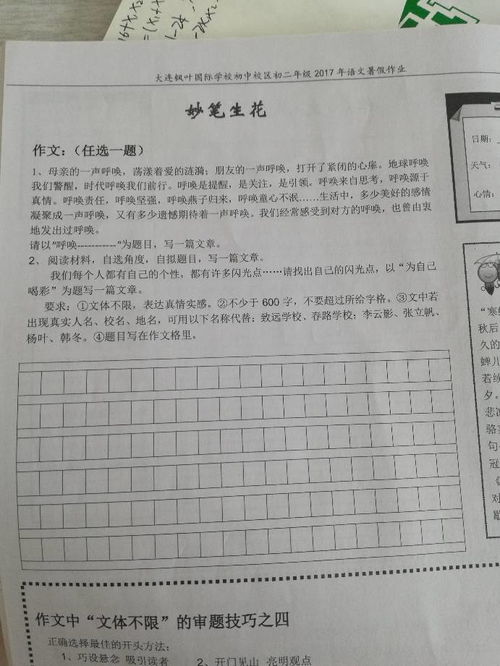 大连枫叶国际学校初中校区初二年级 2017 年语文暑假作业
妙笔生花
作文：（任选一题）
1、母亲的一声呼唤，荡漾着爱的涟漪；朋友的一声呼唤，打开了紧闭的心扉。地球呼唤
我们警醒，时代呼唤我们前行。呼唤是提醒，是关注，是引领。呼唤来自思考，呼唤源于
真情。呼唤责任，呼唤坚强，呼唤燕子归来，呼唤童心不泯……生活中，多少美好的情感
凝聚成一声呼唤，又有多少遗憾期待着一声呼唤。我们经常感受到对方的呼唤，也曾由衷
地发出过呼唤。
请以“呼唤-----------”为题目，写一篇文章。
2、阅读材料，自选角度，自拟题目，写一篇文章。
我们每个人都有自己的个性，都有许多闪光点……请找出自己的闪光点，以“为自己
喝彩”为题写一篇文章。
要求：①文体不限，表达真情实感。②不少于 600 字，不要超过所给字格。③文中若
出现真实人名、校名、地名，可用以下名称代替：致远学校、春路学校；李云影、张立帆、
杨叶、韩冬。④题目写在作文格里。
作文中“文体不限”的审题技巧之四
正确选择最佳的开头方法：
1、巧设悬念 吸引读者 2、开门见山 亮明观点
日期：
天气：
心情：
“寒
秋后
久的
蝉儿
若
夕。
悲
骆
玄
冠
《
对